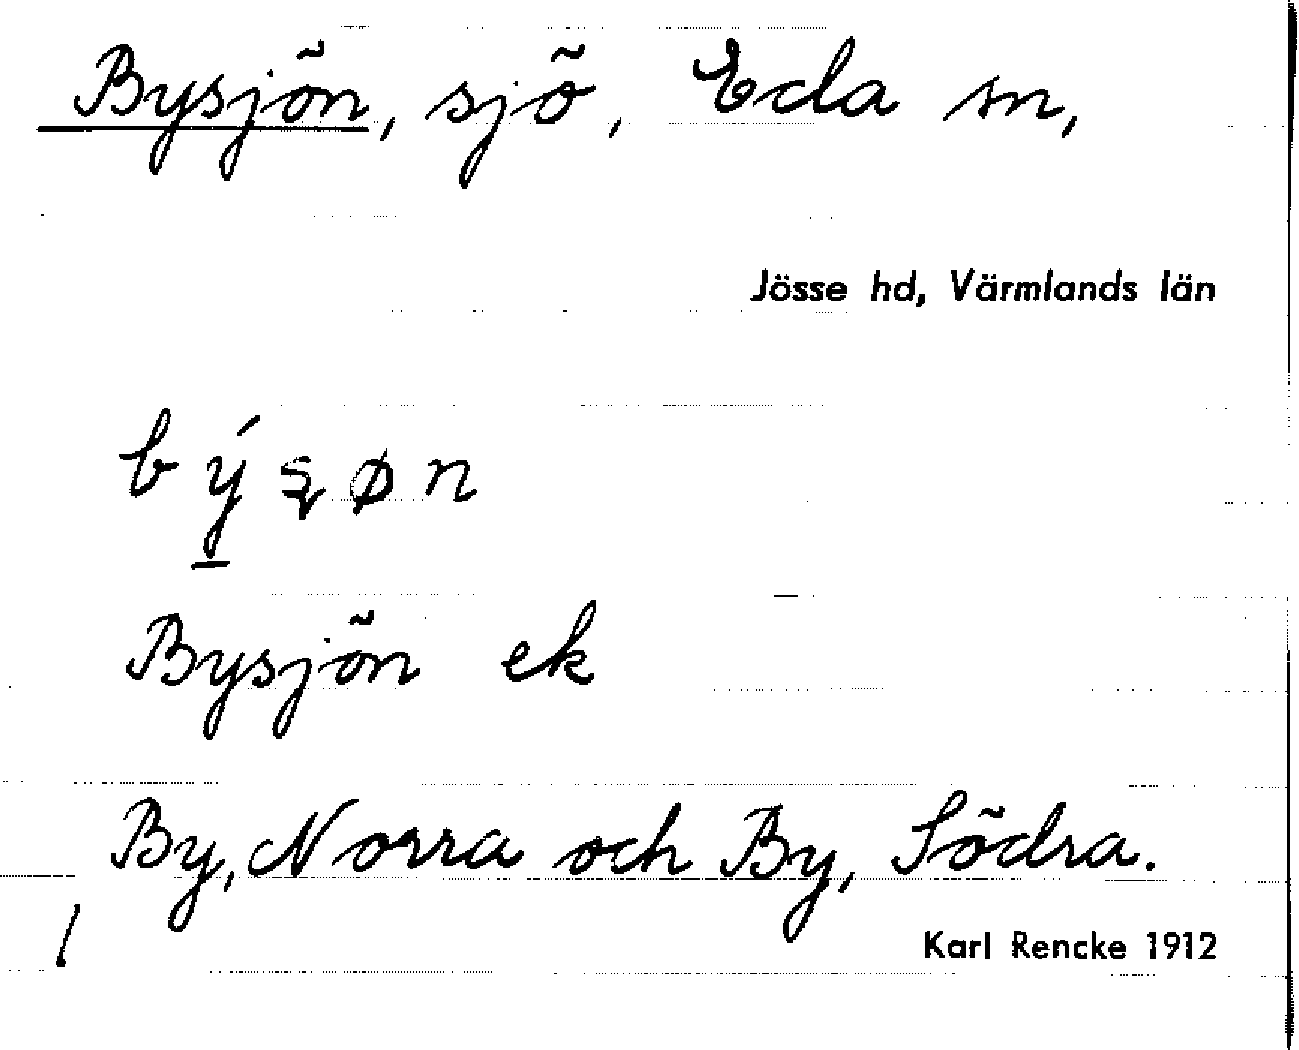 Bysjön, sjö, Eda sn,
Jösse hd, Värmlands län
Bysjön ek
By, Norra och By, Södra.
Karl Rencke 1912